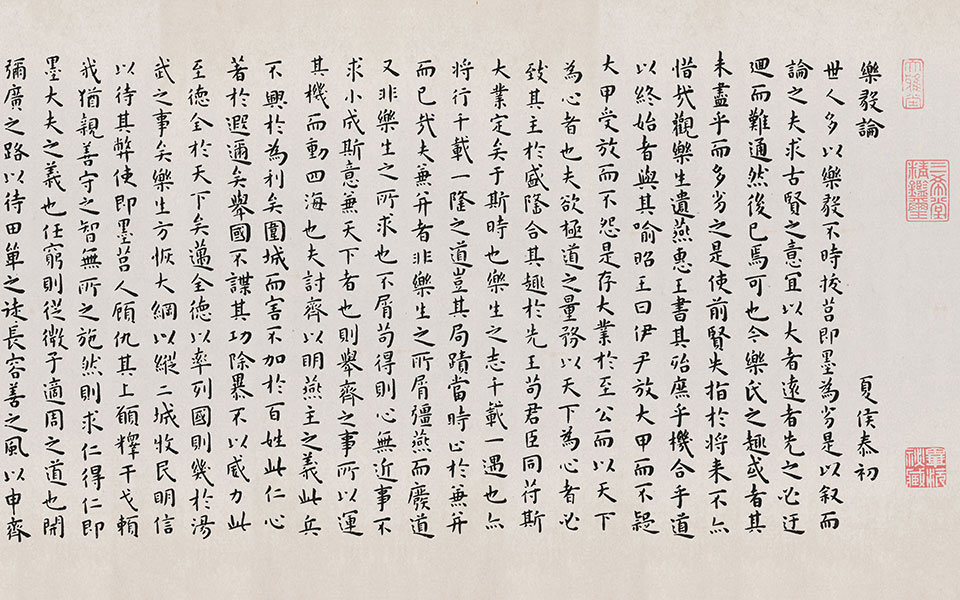 三希堂
精鑑璽
樂毅論 夏侯泰初
世人多以樂毅不時拔莒即墨為劣是以叙而
論之夫求古賢之意宜以大者遠者先之必迂
迴而難通然後已焉可也今樂氏之趣或者其
未盡乎而多劣之是使前賢失指於將來不亦
惜哉觀樂生遺燕惠王書其殆庶乎機合乎道
以終始者與其喻昭王曰伊尹放大甲而不疑
大甲受放而不怨是存大業於至公而以天下
為心者也夫欲極道之量務以天下為心者必
致其主於盛隆合其趣於先王苟君臣同苻斯
大業定矣于斯時也樂生之志千載一遇也亦
將行千載一隆之道豈其局蹟當時止於兼并
而已哉夫兼并者非樂生之所屑彊燕而廢道
又非樂生之所求也不屑苟得則心無近事不
求小成斯意兼天下者也則舉齊之事所以運
其機而動四海也夫討齊以明燕主之義此兵
不興於為利矣圍城而害不加於百姓此仁心
著於遐邇矣舉國不謀其功除暴不以威力此
至德全於天下矣邁全德以率列國則幾於湯
武之事矣樂生方恢大綱以縱二城牧民明信
以待其弊使即墨莒人顧仇其上願釋干戈賴
我猶親善守之智無所之施然則求仁得仁即
墨大夫之義也任窮則從微子適周之道也開
彌廣之路以待田單之徒長容善之風以申齊